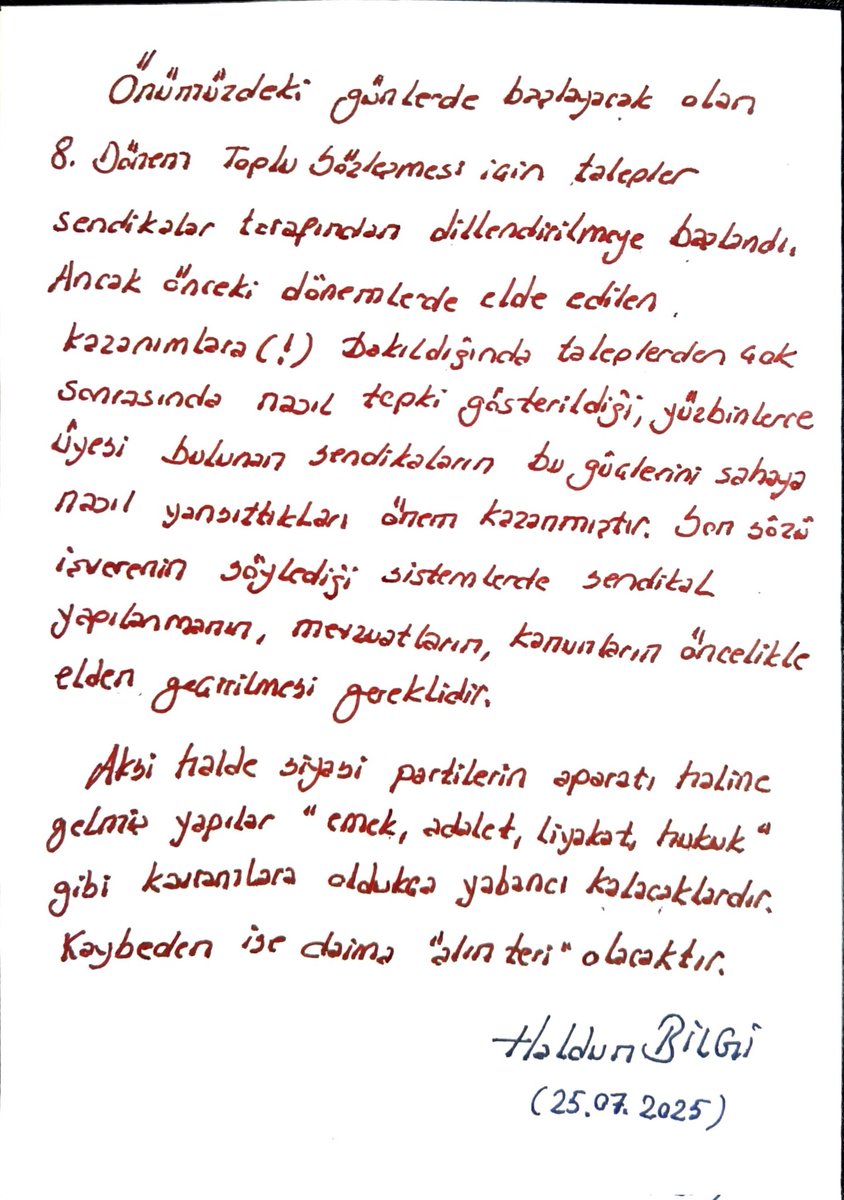 Önümüzdeki günlerde başlayacak olan
8. Dönem Toplu Sözleşmesi için talepler
sendikalar tarafından dillendirilmeye başlandı.
Ancak önceki dönemlerde elde edilen
kazanımlara (!) bakıldığında taleplerden çok
sonrasında nasıl tepki gösterildiği, yüzbinlerce
üyesi bulunan sendikaların bu güçlerini sahaya
nasıl yansıttıkları önem kazanmıştır. Son sözü
işverenin söylediği sistemlerde sendikal
yapılanmanın, mevzuatların, kanunların öncelikle
elden geçirilmesi gereklidir.
Aksi halde siyasi partilerin aparatı haline
gelmiş yapılar "emek, adalet, liyakat, hukuk"
gibi kavramlara oldukça yabancı kalacaklardır.
Kaybeden ise daima "alın teri" olacaktır.
Haldun BİLGİ
(25.07.2025)